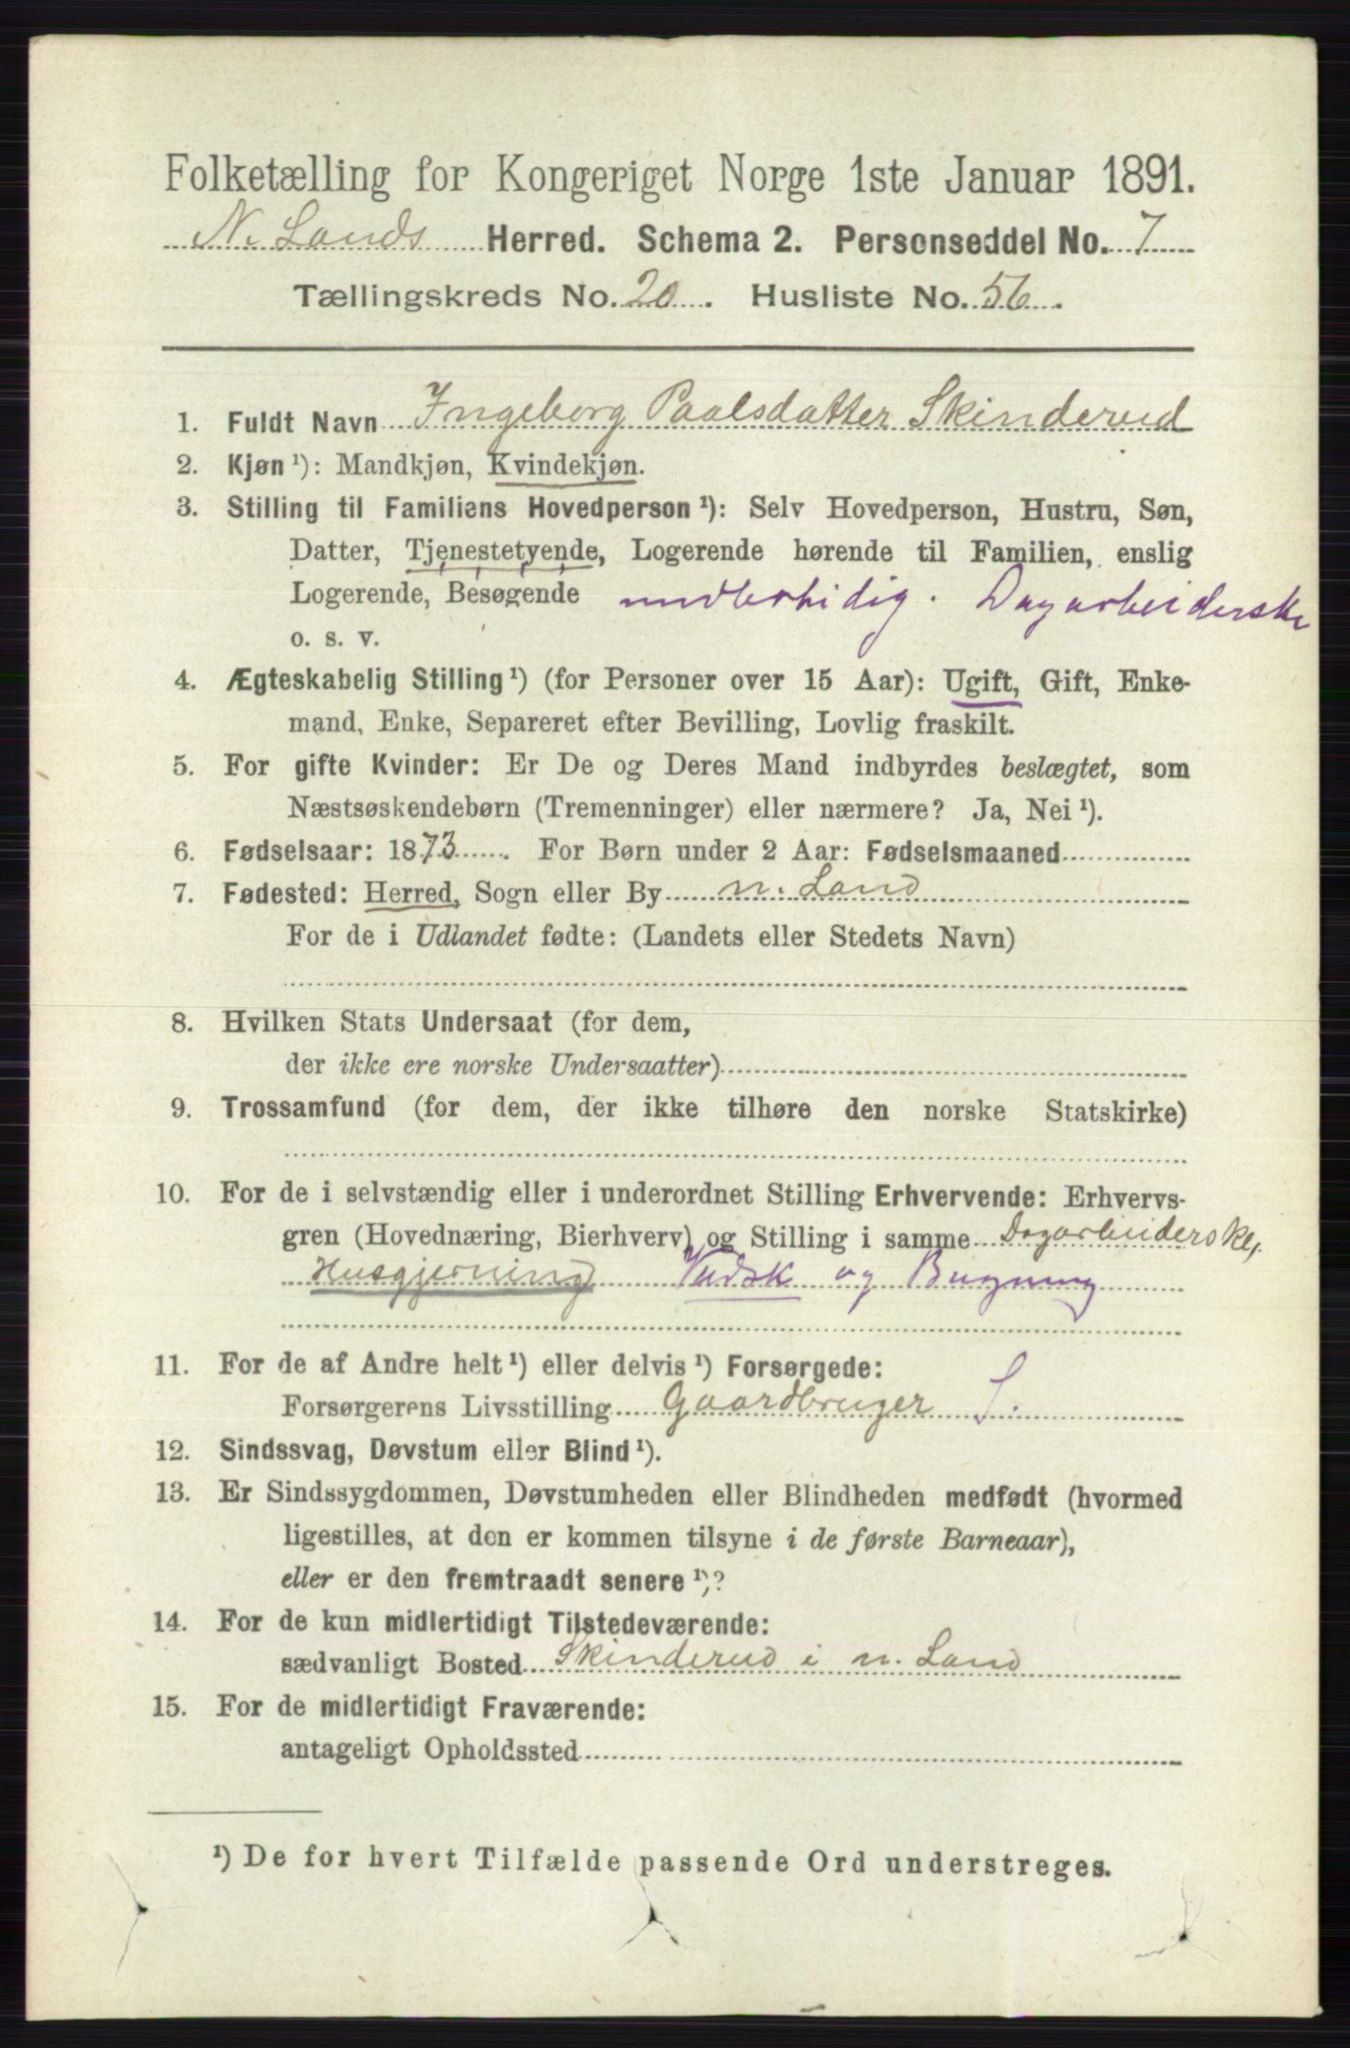 Folketælling for Kongeriget Norge 1ste Januar 1891.
N. Lands Herred. Schema 2. Personseddel No. 7
Tællingskreds No. 20. Husliste No. 56.
1. Fuldt Navn Ingeborg Paalsdatter Skinderud
2. Kjøn ¹): Mandkjøn, Kvindekjøn.
3. Stilling til Familiens Hovedperson ¹): Selv Hovedperson, Hustru, Søn,
Datter, Tjenestetyende, Logerende hørende til Familien, enslig
Logerende, Besøgende Dagarbeiderske
o. s. v.
4. Ægteskabelig Stilling ¹) (for Personer over 15 Aar): Ugift, Gift, Enke-
mand, Enke, Separeret efter Bevilling, Lovlig fraskilt.
5. For gifte Kvinder: Er De og Deres Mand indbyrdes beslægtet, som
Næstsøskendebørn (Tremenninger) eller nærmere? Ja, Nei ¹).
6. Fødselsaar: 1873. For Børn under 2 Aar: Fødselsmaaned
7. Fødested: Herred, Sogn eller By n. Land
For de i Udlandet fødte: (Landets eller Stedets Navn)
8. Hvilken Stats Undersaat (for dem,
der ikke ere norske Undersaatter)
9. Trossamfund (for dem, der ikke tilhøre den norske Statskirke)
10. For de i selvstændig eller i underordnet Stilling Erhvervende: Erhvervs-
gren (Hovednæring, Bierhverv) og Stilling i samme Dagarbeiderske,
Husgjerning Vadsk og Bagning
11. For de af Andre helt ¹) eller delvis ¹) Forsørgede:
Forsørgerens Livsstilling Gaardbruger S.
12. Sindssvag, Døvstum eller Blind ¹).
13. Er Sindssygdommen, Døvstumheden eller Blindheden medfødt (hvormed
ligestilles, at den er kommen tilsyne i de første Barneaar),
eller er den fremtraadt senere ¹)?
14. For de kun midlertidigt Tilstedeværende:
sædvanligt Bosted Skinderud i n. Land
15. For de midlertidigt Fraværende:
antageligt Opholdssted
¹) De for hvert Tilfælde passende Ord understreges.